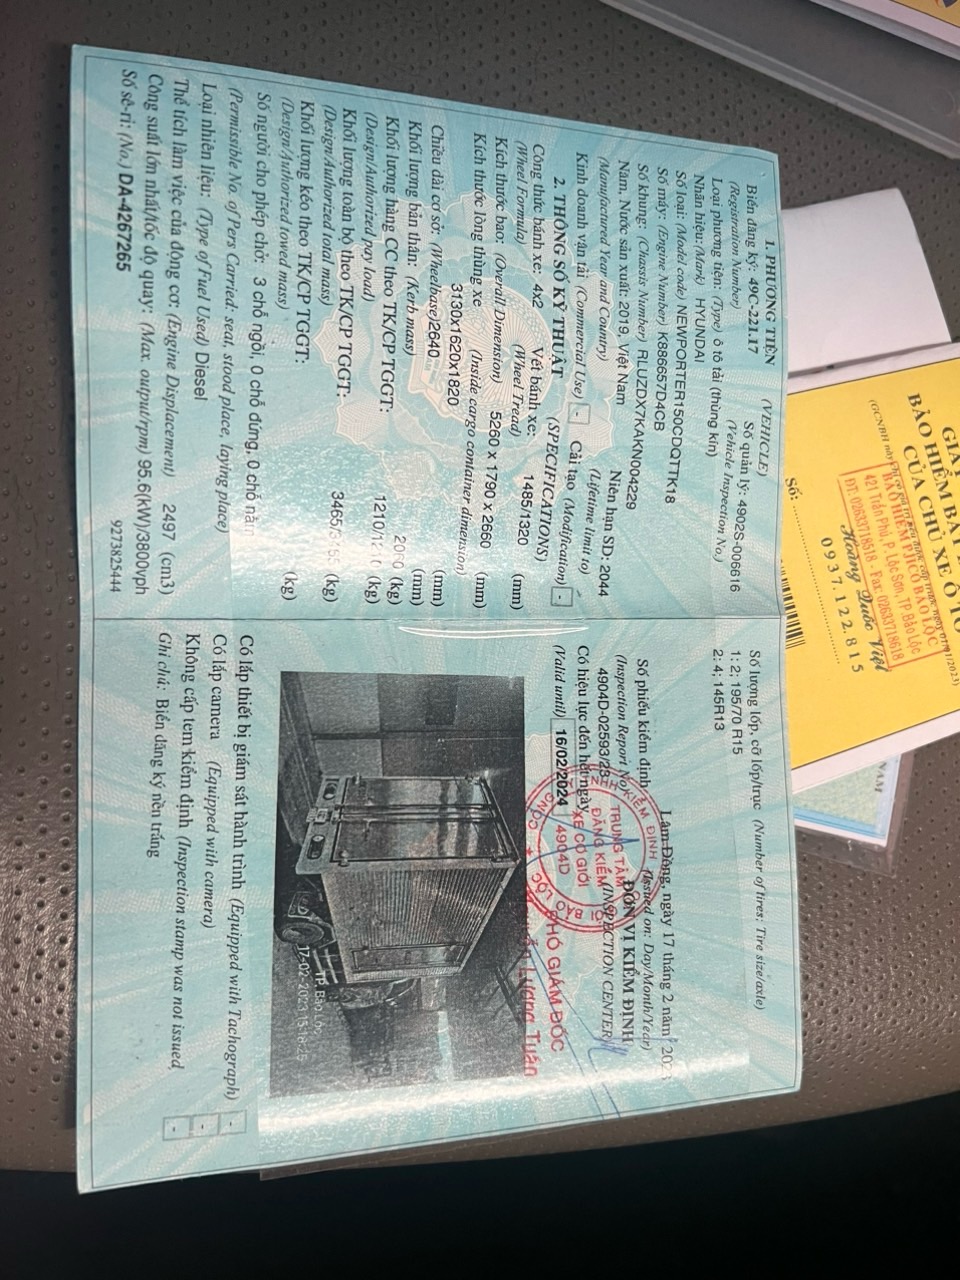 1. PHƯƠNG TIỆN (VEHICLE)
Biển đăng ký: 49C-221.17 Số quản lý: 4902S-006616
(Registration Number) (Vehicle Inspection No.)
Loại phương tiện: (Type) ô tô tải (thùng kín)
Nhãn hiệu: (Mark) HYUNDAI
Số loại: (Model code) NEWPORTER150CDQTTK18
Số máy: (Engine Number) K86657D4CB
Số khung: (Chassis Number) RLUZDX7KAKN004229
Năm, Nước sản xuất: 2019, Việt Nam Niên hạn SD: 2044
(Manufactured Year and Country) (Lifetime limit to)
Kinh doanh vận tải (Commercial Use) - Cải tạo (Modification) -
2. THÔNG SỐ KỸ THUẬT (SPECIFICATIONS)
Công thức bánh xe: 4x2 Vệt bánh xe: 1485/1320 (mm)
(Wheel Formula) (Wheel Tread)
Kích thước bao: (Overall Dimension) 5260 x 1790 x 2660 (mm)
Kích thước lòng thùng xe (Inside cargo container dimension)
3130x1620x1820 (mm)
Chiều dài cơ sở: (Wheelbase) 2640 (mm)
Khối lượng bản thân: (Kerb mass) 2060 (kg)
Khối lượng hàng CC theo TK/CP TGGT: 1210/ (kg)
(Design/Authorized pay load)
Khối lượng toàn bộ theo TK/CP TGGT: 3465/ (kg)
(Design/Authorized total mass)
Khối lượng kéo theo TK/CP TGGT: (kg)
(Design/Authorized towed mass)
Số người cho phép chở: 3 chỗ ngồi, 0 chỗ đứng, 0 chỗ nằm
(Permissible No. of Pers Carried: seat, stood place, laying place)
Loại nhiên liệu: (Type of Fuel Used) Diesel
Thể tích làm việc của động cơ: (Engine Displacement) 2497 (cm3)
Công suất lớn nhất/tốc độ quay: (Max. output/rpm) 95.6(kW)/3800vph
Số sê-ri: (No.) DA-4267265 9273825444
Số lượng lốp, cỡ lốp/trục (Number of tires; Tire size/axle)
1: 2; 195/70 R15
2: 4; 145R13
Lâm Đồng, ngày 17 tháng 2 năm 2023
(Issued on: Day/Month/Year)
Số phiếu kiểm định ĐƠN VỊ KIỂM ĐỊNH
(Inspection Report No) (INSPECTION CENTER)
4904D-02593/23
Có hiệu lực đến hết ngày
(Valid until) 16/02/2024
TRUNG TÂM
ĐĂNG KIỂM
XE CƠ GIỚI
4904D
PHÓ GIÁM ĐỐC
Lương Tuấn
TP Bảo Lộc
17-02-2023 15:18:25
Có lắp thiết bị giám sát hành trình (Equipped with Tachograph) -
Có lắp camera (Equipped with camera) -
Không cấp tem kiểm định (Inspection stamp was not issued) -
Ghi chú: Biển đăng ký nền trắng
GIẤY
BẢO HIỂM BẮT
CỦA CHỦ XE Ô TÔ
BẢO HIỂM PJICO BẢO LỘC
421 Trần Phú, P. Lộc Sơn, TP Bảo Lộc
ĐT: 02633718618 - Fax: 02633718618
Hoàng Quốc Việt
0937.122.815
Số:
NAM